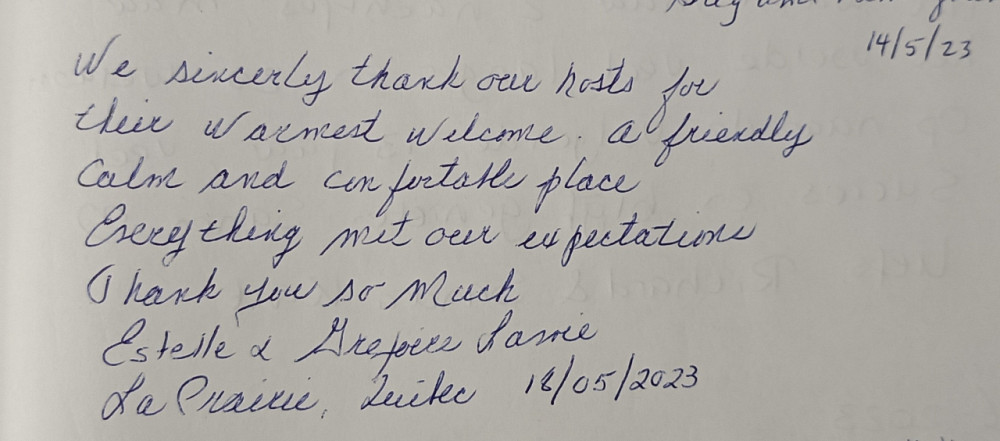 14/5/23
We sincerly thank our hosts for
their warmest welcome. a friendly
Calm and confortable place
Everything met our expectations
Thank you so Much
Estelle & Gregoire
La Prairie, Quebec 18/05/2023